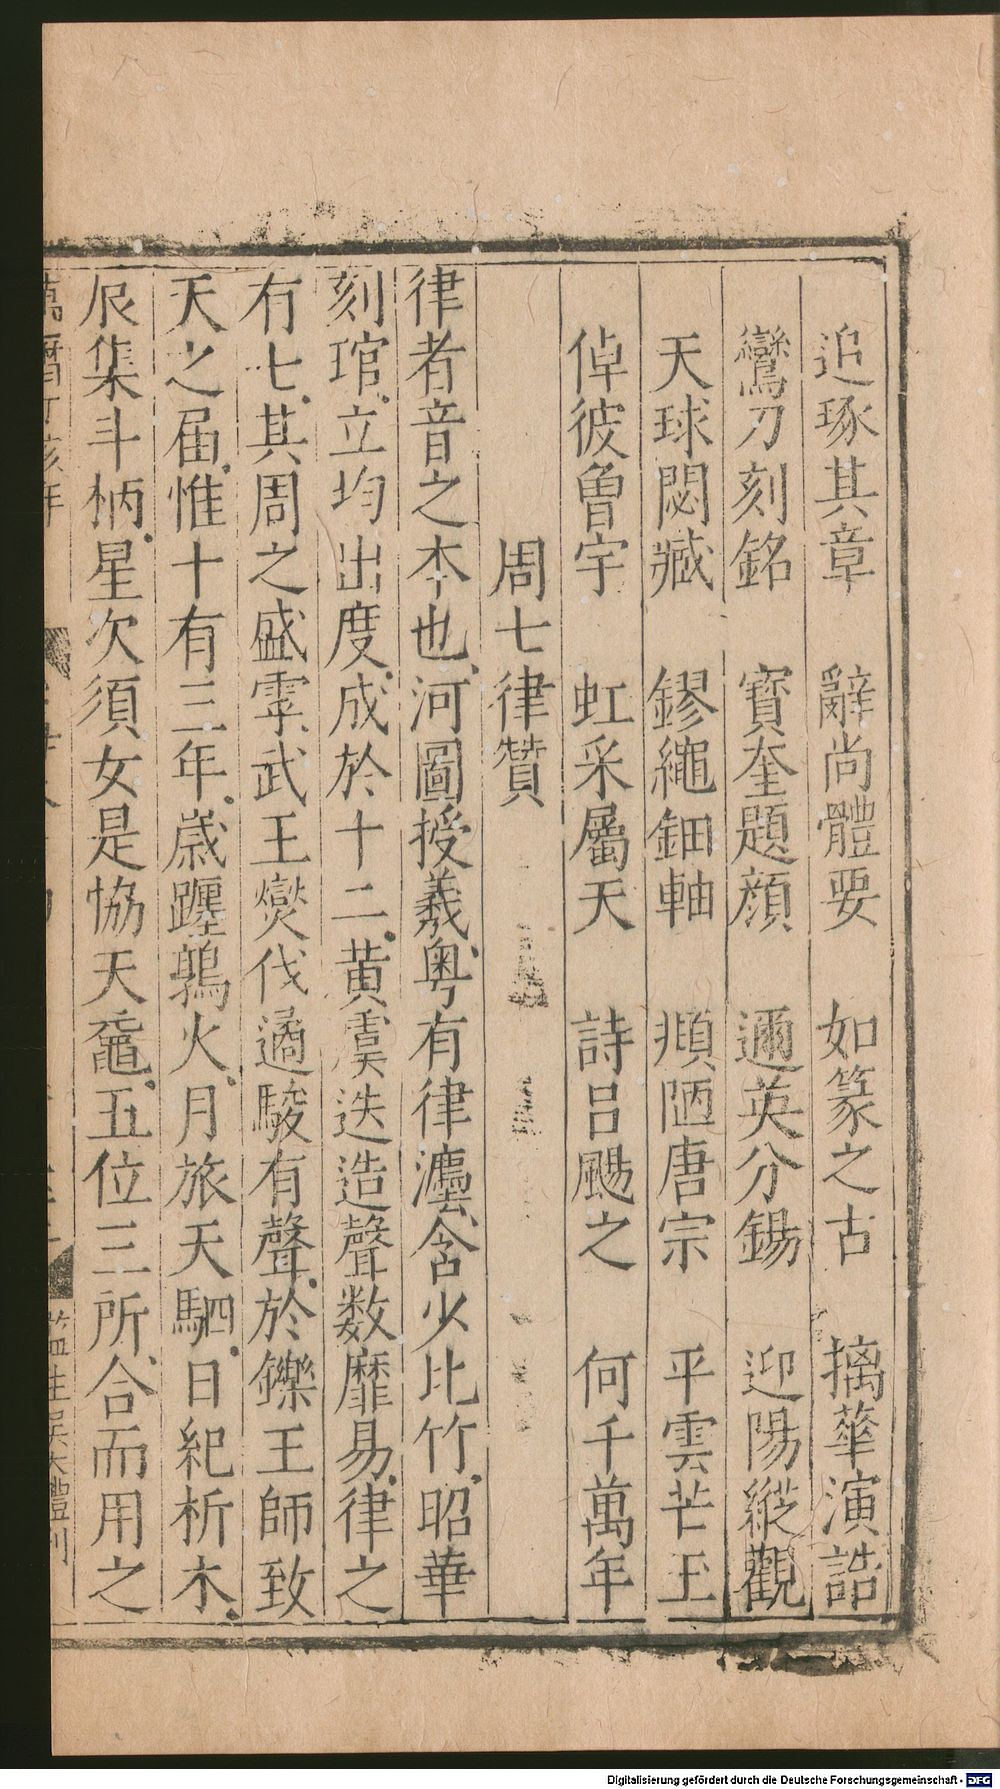 追琢其章　辭尚體要　如篆之古　摛華演誥
鸞刀刻銘　寶奎題顏　邇英分錫　迎陽縱觀
天球閟臧　鏐繩鈿軸　頫陋唐宗　平雲芒玉
倬彼魯宇　虹采屬天　詩呂颺之　何千萬年
周七律贊
律者音之本也河圖授羲粵有律灋含少比竹昭華
刻琯立均出度成於十二黃虞迭造聲數靡易律之
有七其周之盛雩武王爕伐遹駿有聲於鑠王師致
天之届惟十有三年歲躔鶉火月旅天駟日紀析木
辰集斗柄星次須女是恊天黿五位三所合而用之
萬曆丁亥年
監生吳大禮刊
Digitalisierung gefördert durch die Deutsche Forschungsgemeinschaft - DFG